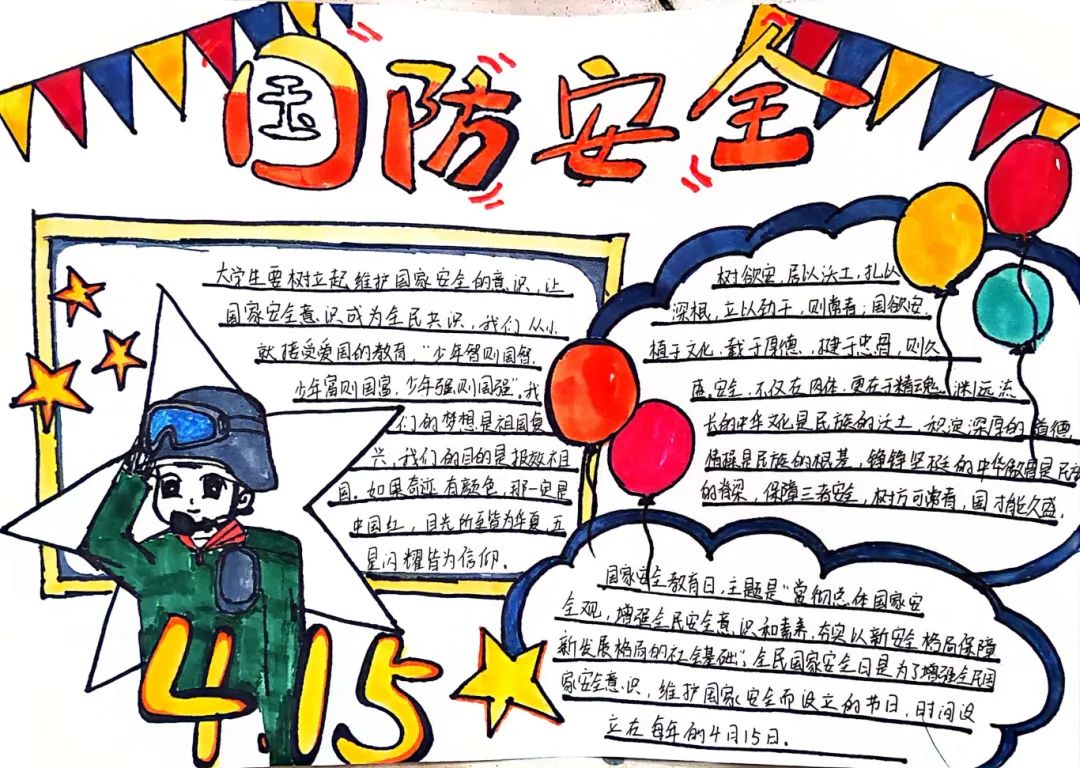 国防安全
大学生要树立起维护国家安全的意识，让
国家安全意识成为全民共识，我们从小
就接受爱国的教育，“少年智则国智，
少年富则国富，少年强则国强”。我
们的梦想是祖国复
兴，我们的目的是报效祖
国。如果奇迹有颜色，那一定是
中国红，目光所至皆为华夏，五
星闪耀皆为信仰。
4.15
树欲安，居以沃土，扎以
深根，立以劲干，则常青；国欲安，
植于文化，载于厚德，健于忠骨，则久
盛。安全，不仅在肉体，更在于精魂。渊远流
长的中华文化是民族的沃土，积淀深厚的道德
情操是民族的根基，铮铮坚挺的中华傲骨是民族
的脊梁，保障三者安全，树方可常青，国才能久盛。
国家安全教育日，主题是“贯彻总体国家安
全观，增强全民安全意识和素养，夯实以新安全格局保障
新发展格局的社会基础”，全民国家安全日是为了增强全民国
家安全意识，维护国家安全而设立的节日，时间设
立在每年的4月15日。